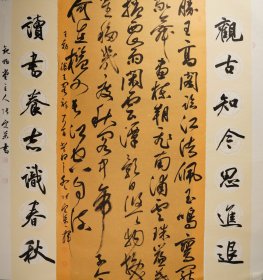 觀古知今思進退
滕王高閣臨江渚佩玉鳴鸞罷
歌舞畫棟朝飛南浦雲珠簾暮
捲西山雨閑雲潭影日悠悠物換
星移幾度秋閣中帝子今
何在檻外長江空自流
讀書養志識春秋